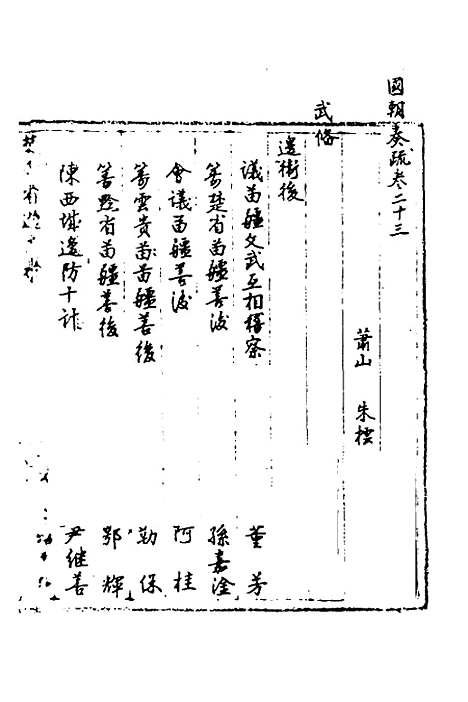 國朝奏疏卷二十三
蕭山 朱橒
武俻
邊衛後
議苗疆文武互相稽察 董芳
籌楚省苗疆善後 孫嘉淦
會議苗疆善後 阿桂
籌雲貴苗苗疆善後 勒保
籌黔省苗疆善後 鄂輝
陳西域邊防十計 尹継善